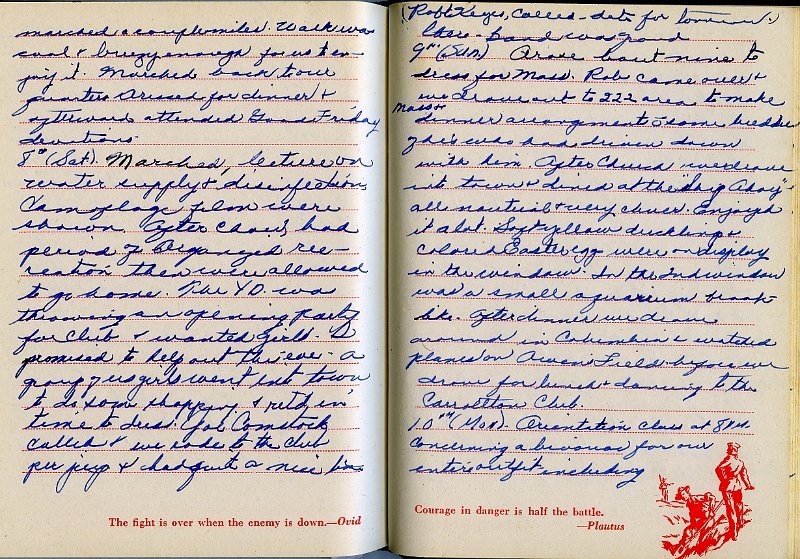 marched a couple miles. Walk was
cool & breezy enough for us to en-
joy it. Marched back to our
quarters dressed for dinner &
afterward attended Good Friday
devotions.
8th (Sat). Marched, lecture on
water supply & disinfection,
Camoflage film were
shown. After Chow, had
period of Organized rec-
reation then were allowed
to go home. The was
throwing an opening Party
for Club & wanted girls - I
promised to help out this eve - a
group of us girls went into town
to do some shopping & ret'd in
time to dress. Joe Comstock
called & we rode to the club
per jeep & had quite a nice time
The fight is over when the enemy is down.—Ovid
(Rob't Keyes, called - date for tomorrow.)
there - band was good
9th (Sun) Arose bout nine to
dress for Mass. Rob came over &
we drove out to 222 area to make
Mass &
dinner arrangements some buddie
of his who had driven down
with him. After Church, we drove
into town & dined at the "Ship Ahoy"
all nautical & very clever. Enjoyed
it a lot. Soft yellow ducklings &
colored Easter egg were on display
in the window. In the 2nd window
was a small aquarium
like. After dinner we drove
around in Columbia & watched
planes on Owens Field before we
drove for lunch & dancing to the
Carrollton Club.
10th (Mon). Orientation class at 8 AM.
concerning a bivouac for our
entire outfit including
Courage in danger is half the battle.
—Plautus